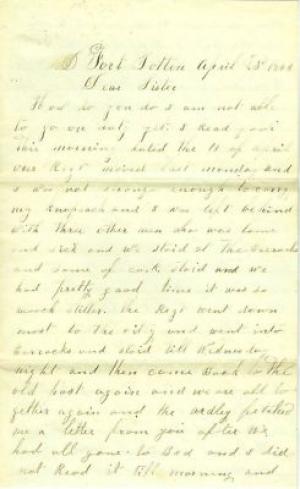 Fort Totten April 23d 186
Dear Sister
How do you do I am not able
to go on duty yet. I Read your
this morning dated the 11 of april
our Regt moved last monday and
I was not strong enough to carry
my Knapsack and I was left behind
with three other men who was lame
and sick and we staid at the Barracks
and some of Co staid and we
had pretty good time it was so
much stiller. the Regt went down
most to the city and went into
Barracks and staid till Wednesday
night and then came Back to the
old post again and we are all to
gether again and the fetched
me a letter from you after we
had all gone to Bed and I did
not Read it till morning and